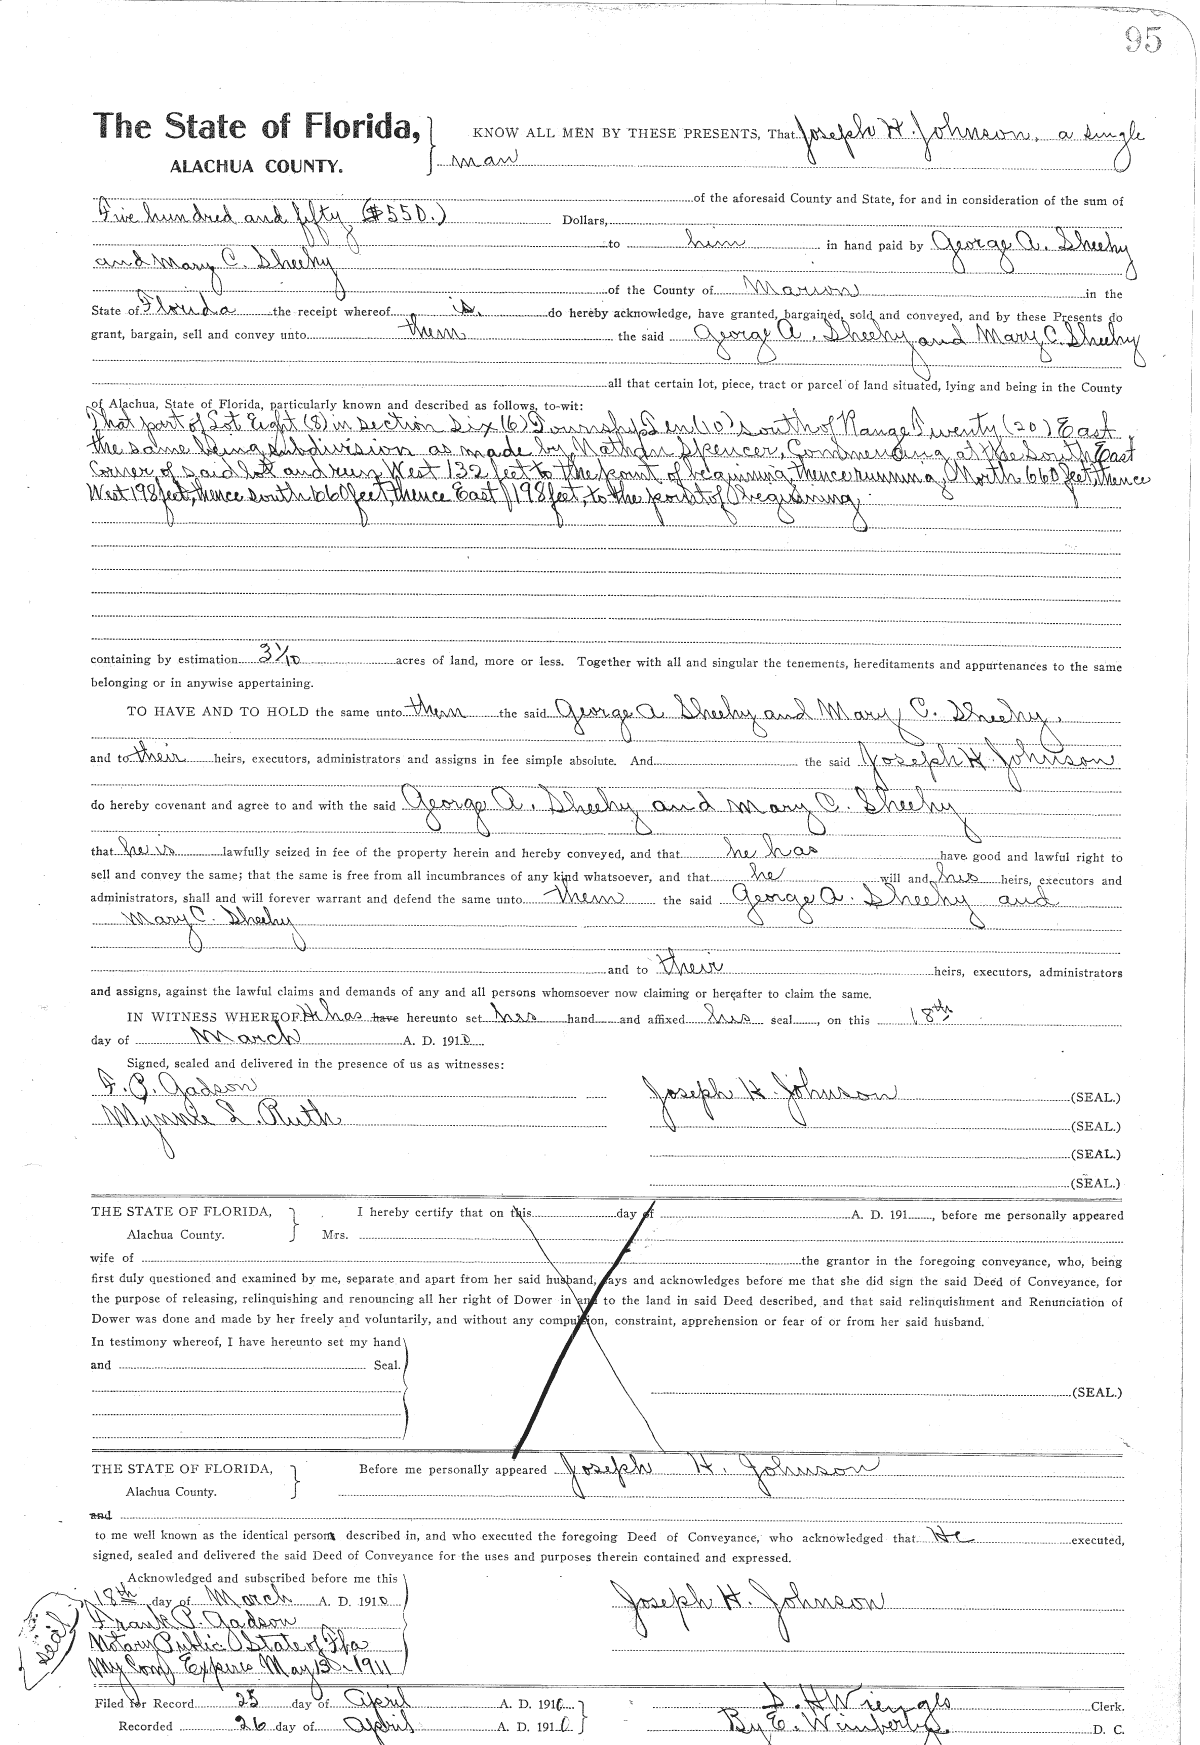 95
The State of Florida, KNOW ALL MEN BY THESE PRESENTS, That Joseph H. Johnson, a single
ALACHUA COUNTY. man
of the aforesaid County and State, for and in consideration of the sum of
Five hundred and fifty ($550.) Dollars,
to him in hand paid by George A. Sheehy
and Mary C. Sheehy
of the County of Marion in the
State of Florida the receipt whereof is, do hereby acknowledge, have granted, bargained, sold and conveyed, and by these Presents do
grant, bargain, sell and convey unto them the said George A. Sheehy and Mary C. Sheehy
all that certain lot, piece, tract or parcel of land situated, lying and being in the County
of Alachua, State of Florida, particularly known and described as follows, to-wit:
That part of Lot Eight (8) in section Six (6) Township Ten (10) south of Range Twenty (20) East,
the same being subdivision as made by Nathan Spencer, Commencing at the South East
Corner of said lot and run West 132 feet to the point of beginning, thence running North 660 feet, thence
West 198 feet, thence south 660 feet, thence East 198 feet, to the point of Beginning
containing by estimation 3 1/10 acres of land, more or less. Together with all and singular the tenements, hereditaments and appurtenances to the same
belonging or in anywise appertaining.
TO HAVE AND TO HOLD the same unto them the said George A Sheehy and Mary C. Sheehy,
and to their heirs, executors, administrators and assigns in fee simple absolute. And the said Joseph H. Johnson
do hereby covenant and agree to and with the said George A. Sheehy and Mary C. Sheehy
that he is lawfully seized in fee of the property herein and hereby conveyed, and that he has have good and lawful right to
sell and convey the same; that the same is free from all incumbrances of any kind whatsoever, and that he will and his heirs, executors and
administrators, shall and will forever warrant and defend the same unto them the said George A. Sheehy and
Mary C. Sheehy
and to their heirs, executors, administrators
and assigns, against the lawful claims and demands of any and all persons whomsoever now claiming or hereafter to claim the same.
IN WITNESS WHEREOF He has have hereunto set his hand and affixed his seal, on this 18th
day of March A. D. 1910
Signed, sealed and delivered in the presence of us as witnesses:
F. P. Gadson Joseph H. Johnson (SEAL.)
Mynnie L. Ruth (SEAL.)
(SEAL.)
(SEAL.)
THE STATE OF FLORIDA, I hereby certify that on this day of A. D. 191, before me personally appeared
Alachua County. Mrs.
wife of the grantor in the foregoing conveyance, who, being
first duly questioned and examined by me, separate and apart from her said husband, says and acknowledges before me that she did sign the said Deed of Conveyance, for
the purpose of releasing, relinquishing and renouncing all her right of Dower in and to the land in said Deed described, and that said relinquishment and Renunciation of
Dower was done and made by her freely and voluntarily, and without any compulsion, constraint, apprehension or fear of or from her said husband.
In testimony whereof, I have hereunto set my hand
and Seal.
(SEAL.)
THE STATE OF FLORIDA, Before me personally appeared Joseph H. Johnson
Alachua County.
and
to me well known as the identical person described in, and who executed the foregoing Deed of Conveyance, who acknowledged that He executed,
signed, sealed and delivered the said Deed of Conveyance for the uses and purposes therein contained and expressed.
Acknowledged and subscribed before me this
18th day of March A. D. 1910 Joseph H. Johnson
Frank P. Gadson
Seal Notary Public State of Fla
My Com Expires May 1911
Filed for Record 25 day of April A. D. 1910 S. H Wienges Clerk.
Recorded 26 day of April A. D. 1910 By E. Wimberly D. C.